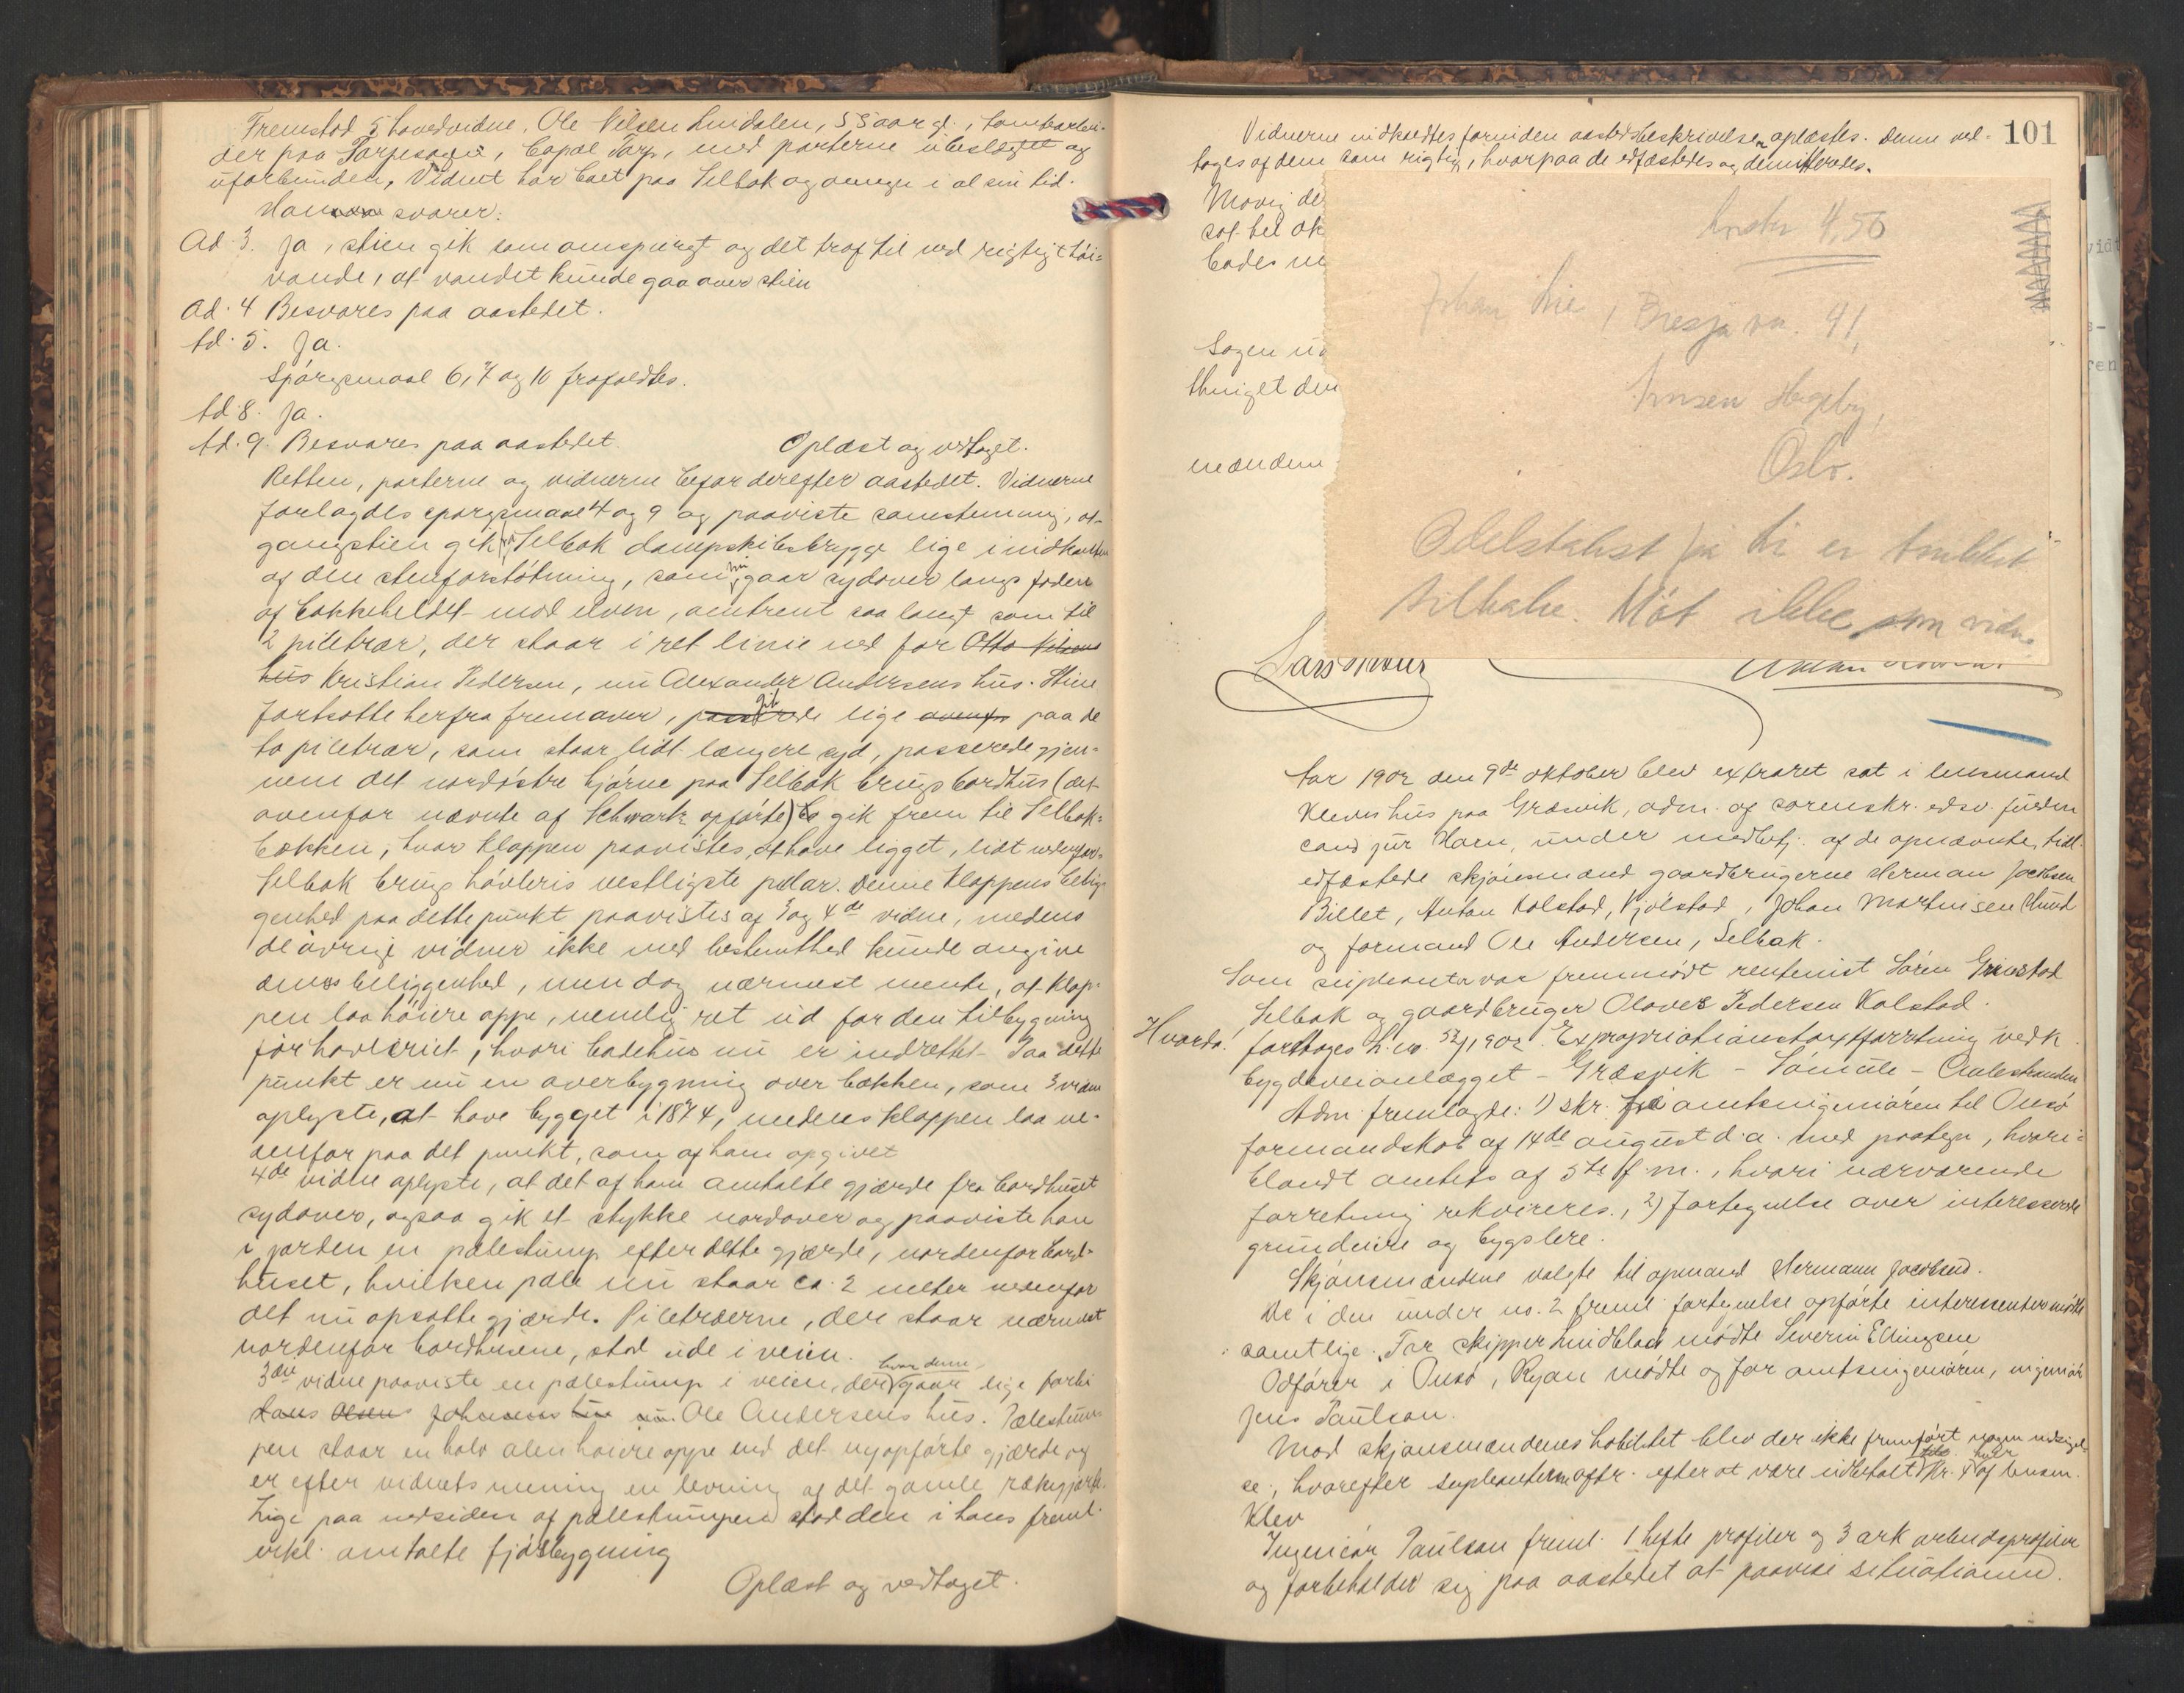 Fremstod 5 hovedvidne, Ole Nilsen Lundalen, 55 aar gl., tomtearbei-
der paa Torpesagen, Copal Torp, med parterne ubeslægtet og
uforbunden, Vidnet har boet paa Selbak og omegn i al sin tid.
Han svarer:
Ad 3. Ja, stien gik som omspurgt og det traf til ved rigtigt høi-
vande, at vandet kunde gaa over stien
Ad. 4 Besvares paa aastedet.
Ad. 5. Ja.
Spørgsmaal 6, 7 og 10 frafaldtes.
Ad. 8. Ja.
Ad. 9. Besvares paa aastedet. Oplæst og vedtaget.
Retten, parterne og vidnerne befor derefter aastedet. Vidnerne
forlagdes spørgsmaal 4 og 9 og paaviste samstemmig, at
gangstien gik fra Selbak dampskibsbrygge lige i nidkanten
af den stenforstøtning, som nu gaar sydover langs foden
af bakkeheldet mod elven, omtrent saa langt som til
2 piletrær, der staar i ret linie ned for Otto Nilsens
hus Kristian Pedersen, nu Alexander Andersens hus. Stien
fortsatte herfra fremover, passerede gik lige ovenfor paa de
to piletrær, som staar lidt længere syd, passerede gjen-
nem det nordøstre hjørne paa Selbak brugs bordhus (det
ovenfor nævnte af Schwartz opførte) og gik frem til Selbak-
bækken, hvor kloppen paavistes at have ligget, lidt nedenfor
Selbak brugs høvleris vestligste pelar. Denne kloppens belig-
genhed paa dette punkt paavistes af 3 og 4de vidne, medens
de øvrige vidner ikke med bestemthed kunde angive
dens beliggenhed, men dog nærmest mente, at klop-
pen laa høiere oppe, nemlig ret ud for den tilbygning
for høvleriet, hvori badehus nu er indrettet. Paa dette
punkt er nu en overbygning over bækken, som 3 vidne
oplyste, at have bygget i 1874, medens kloppen laa ne-
denfor paa det punkt, som af ham opgivet
4de vidne oplyste, at det af ham omtalte gjærde fra bordhuset
sydover, ogsaa gik et stykke nordover og paaviste han
i jorden en pælestump efter dette gjærde, nordenfor bord-
huset, hvilken pæle nu staar ca. 2 meter nedenfor
det nu opsatte gjærde. Piletræerne, der staar nærmest
nordenfor bordhusene, stod ude i veien.
3die vidne paaviste en pælestump i veien, der hvor denne gaar lige forbi
Hans Olsens Johnsens hus nu Ole Andersens hus. Pælestum-
pen staar en halv alen høiere oppe end det nyopførte gjærde og
er efter vidnets mening en levning af det gamle rækkgjærde.
Lige paa nedsiden af pælestumpen stod den i hans freml.
erkl. omtalte fjøsbygning
Oplæst og vedtaget.
101
Vidnerne indkaldtes forinden aastedsbeskrivelsen oplæstes. Denne ved-
toges af dem som rigtig, hvorpaa de edfæstedes og demitteredes.
Movig de
sat bel ok
bades ne
Sagen ud
thinget den
mændene
Andr 4,50
Johan Lie, Bresja vn. 41,
Amsen Hageby,
Oslo.
Edelstahst på Li er trukket
tilbake. Møt ikke som vidne
Aar 1902 den 9de oktober blev extraret sat i lensmand
Klevs hus paa Græsvik, adm. af sorenskr. edsv. fuldm
cand jur Horn, under medbetj. af de opnævnte, tidl
edfæstede skjønsmænd gaardbrugerne Herman Jacobsen
Billet, Anton Kolstad, Kjølstad, Johan Martinsen Thund
og formand Ole Andersen, Selbak.
Som supleanter var fremmødt rentenist Søren Grimstad
Selbak og gaardbruger Olaves Pedersen Kolstad.
Hvorda:
foretoges h.no. 52/1902. Expropriationstaxtforretning vedk.
bygdeveianlægget - Græsvik - Somule - Aalestranden
Adm. fremlagde: 1) skr. fra amtsingeniøren til Onsø
formandskab af 14de august d.a. med paategn, hvori-
blandt amtets af 5te f.m., hvori nærværende
forretning rekvireres., 2) Fortegnelse over interesserte
grundeiere og bygslere.
Skjønsmændene valgte til opmand Hermann Jacobsen.
De i den under no. 2 freml. fortegnelse opførte interessenter mødte
samtlige. For skipper Lindblad mødte Severin Ellingsen
Odfører i Onsø, Ryan mødte og for amtsingeniøren, ingeniør
Jens Paulson.
Mod skjønsmændenes habilitet blev der ikke fremført nogen indsigel-
se, hvorefter supleanterne aftr. efter at være udbetalt hver Kr. 4 af lensm.
Klev
Ingeniør Paulson freml. 1 hefte profiler og 3 ark arbeidsprofiler
og forbeholder sig paa aastedet at paavise situationen.